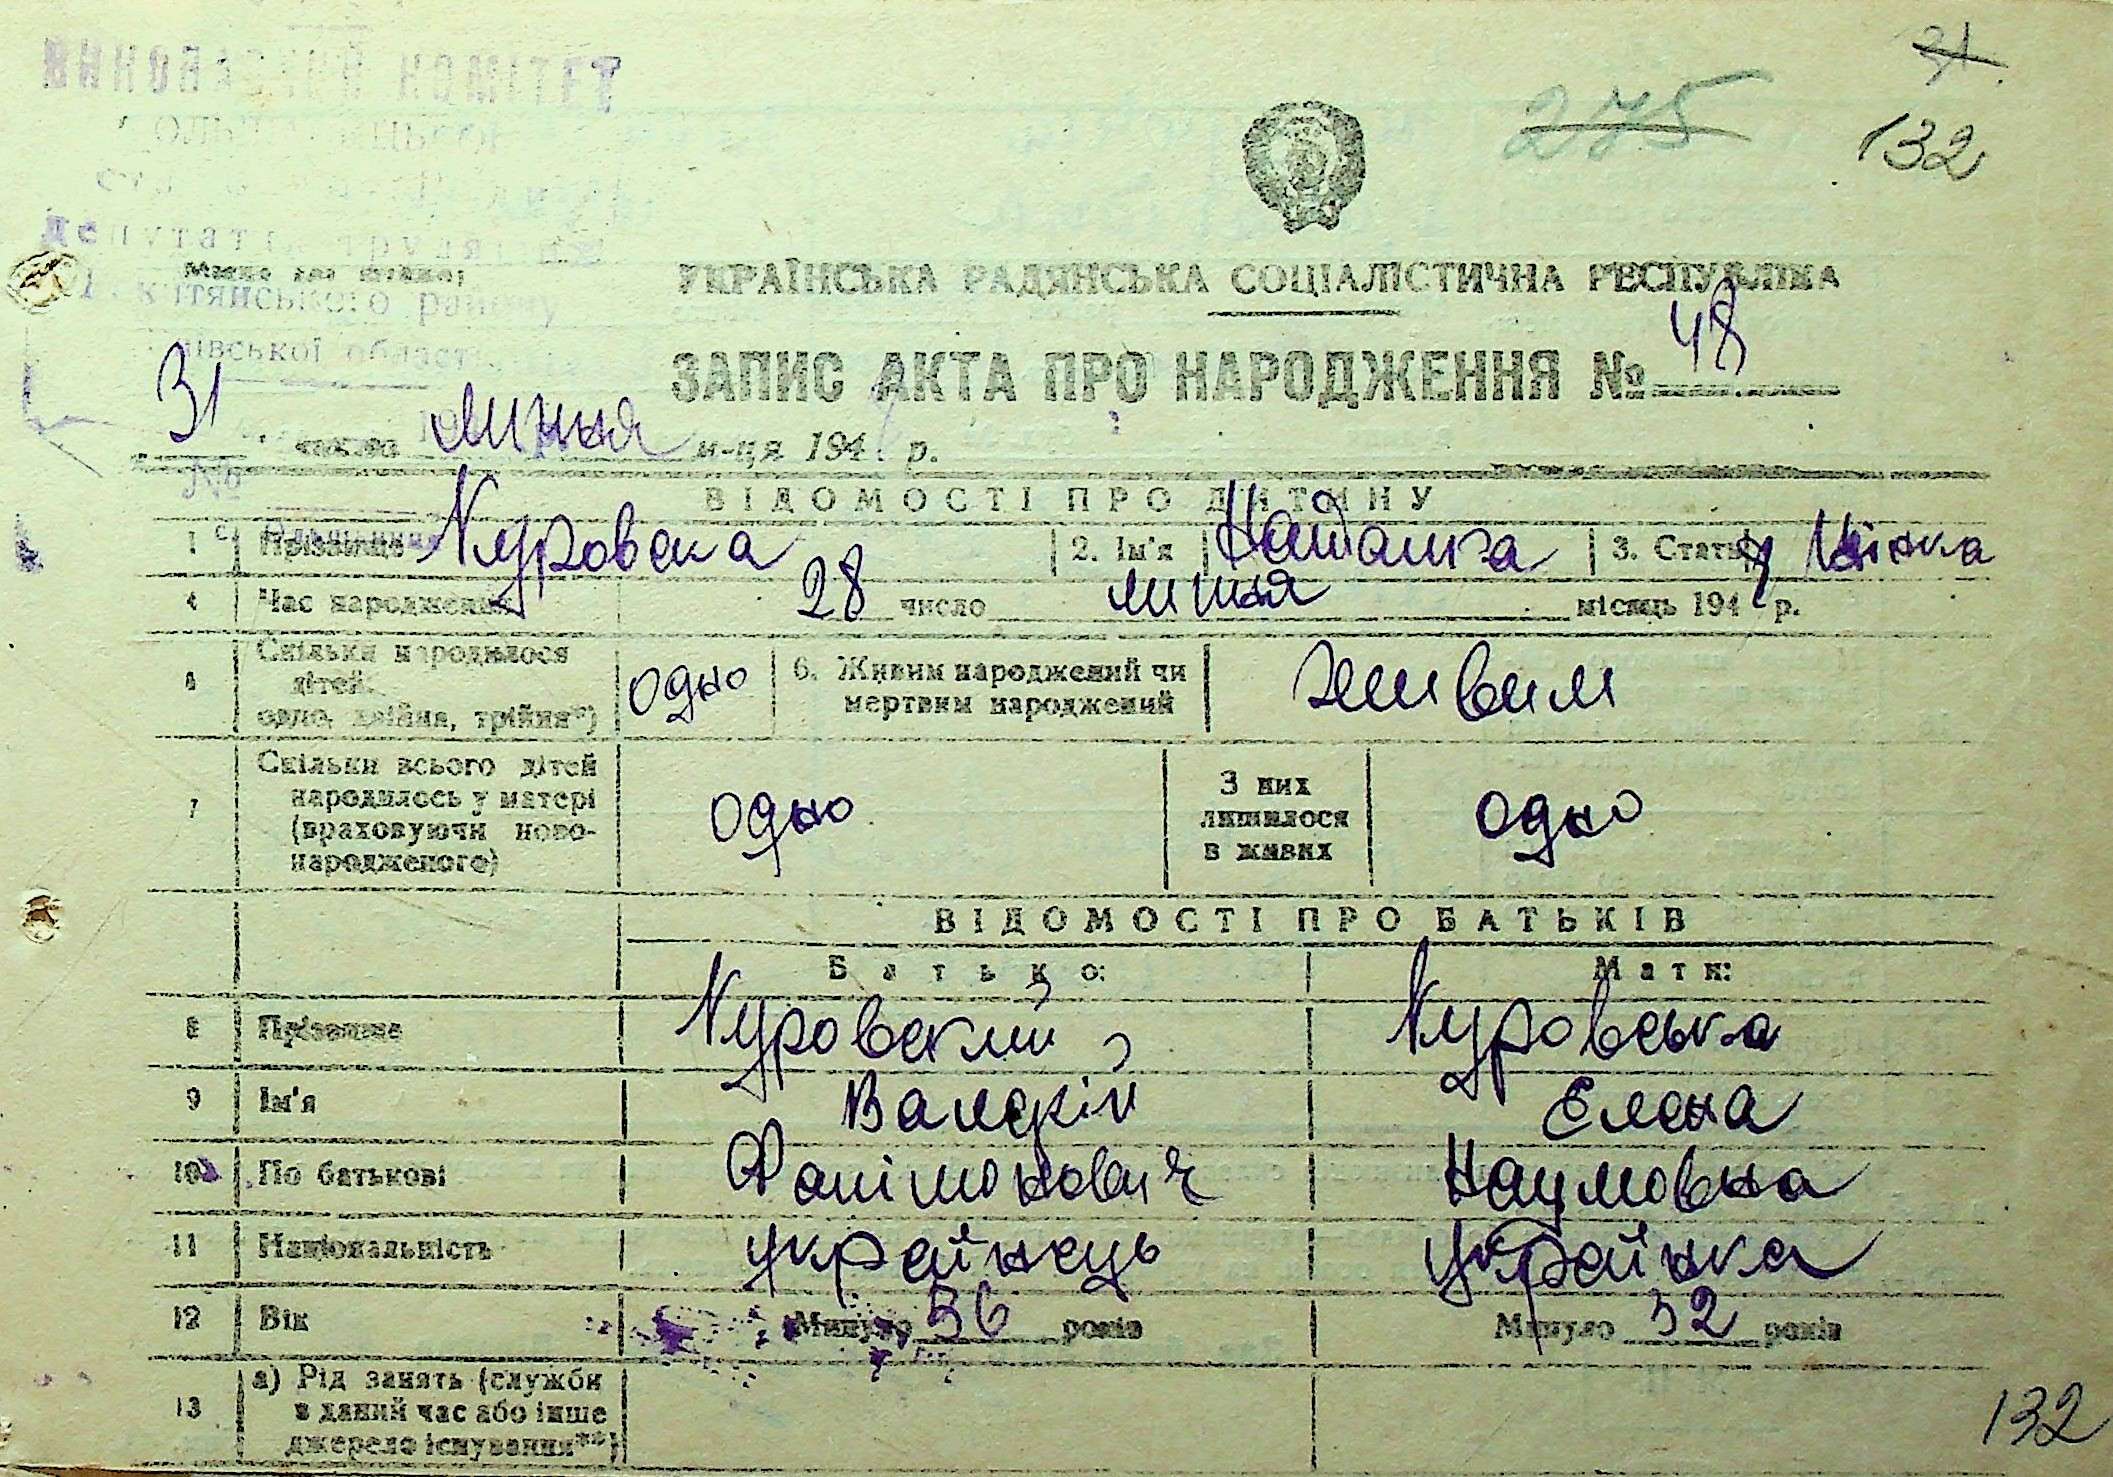 31
275
132
ВИКОНАВЧИЙ КОМІТЕТ
депутатів трудящих
Місце для штампу
УКРАЇНСЬКА РАДЯНСЬКА СОЦІАЛІСТИЧНА РЕСПУБЛІКА
району
області
ЗАПИС АКТА ПРО НАРОДЖЕННЯ № 48
31 число липня м-ця 194 р.
№
ВІДОМОСТІ ПРО ДИТИНУ
1 Прізвище Куровска 2. Ім'я Наталка 3. Стать Жінка
4 Час народження 28 число липня місяць 194 р.
5 Скільки народилося дітей. одно, двійня, трійня*) одно 6. Живим народжений чи мертвим народжений живим
7 Скільки всього дітей народилось у матері (враховуючи ново-народженого) одно З них лишилося в живих одно
ВІДОМОСТІ ПРО БАТЬКІВ
Батько: Мати:
8 Прізвище Куровский Куровська
9 Ім'я Валерій Елена
10 По батькові Наумовна
11 Національність українець українка
12 Вік Минуло 36 років Минуло 32 років
13 а) Рід занять (служби в даний час або інше джерело існування**)
132